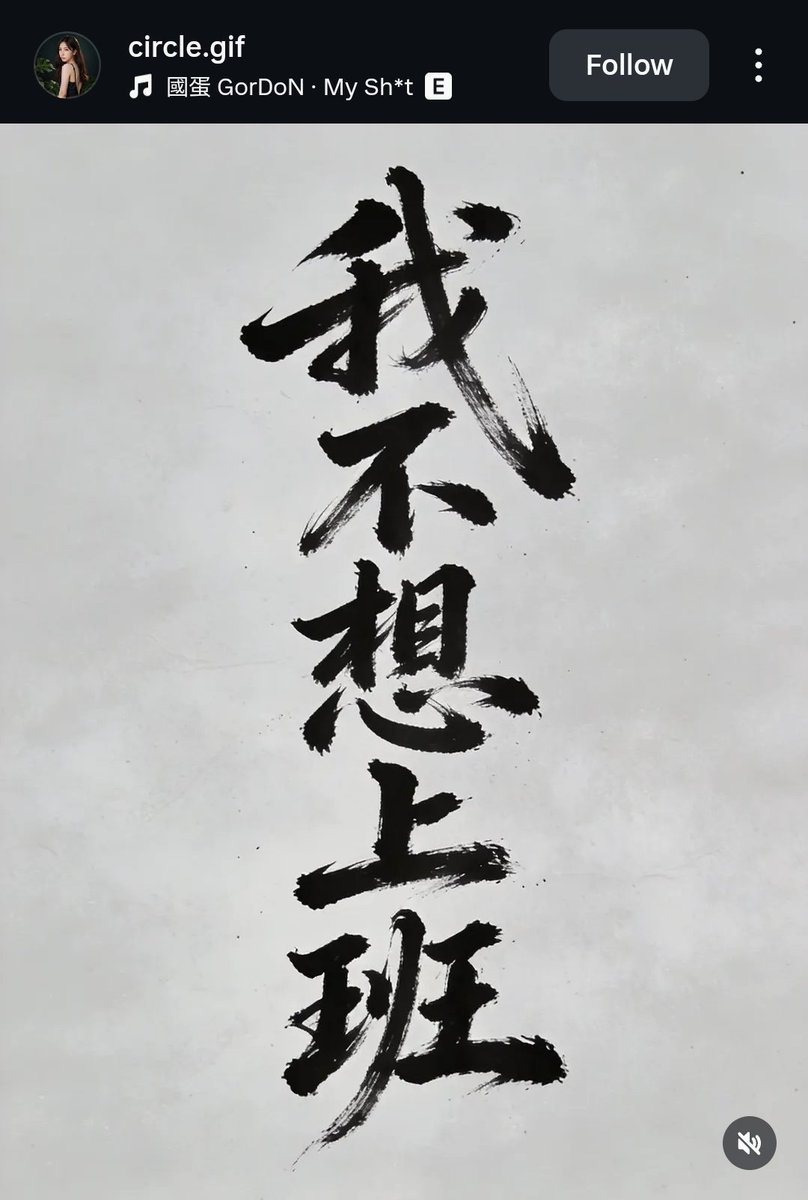 circle.gif
國蛋 GorDoN · My Sh*t E
Follow
我不想上班